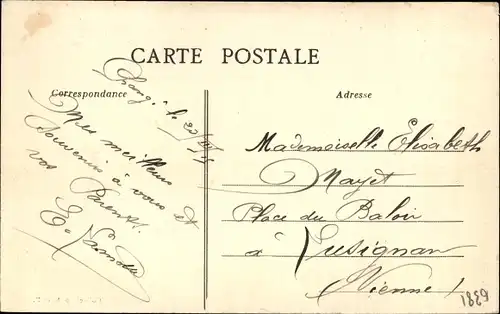 CARTE POSTALE
Correspondance
Adresse
Mes meilleurs
souvenirs à vous et
vos Parents.
Mademoiselle Elisabeth
Mayet
Place du Baloir
à Lusignan
Vienne
1889